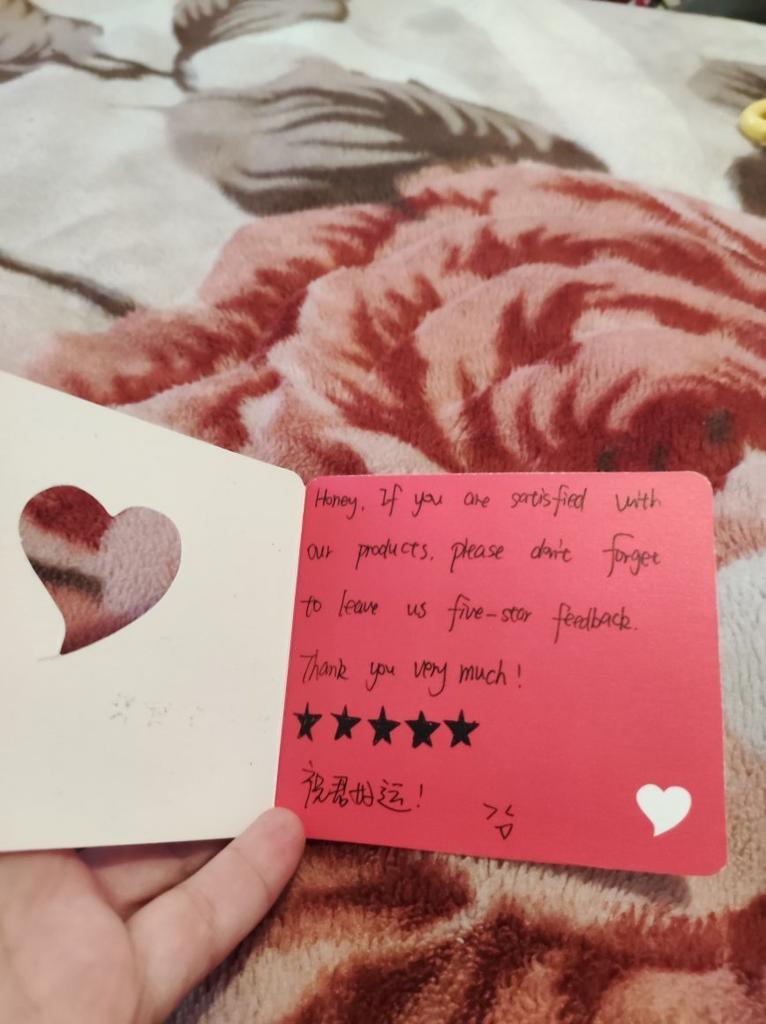 Honey, If you are satisfied with
our products, please don't forget
to leave us five-star feedback.
Thank you very much!
★★★★★
祝君好运!